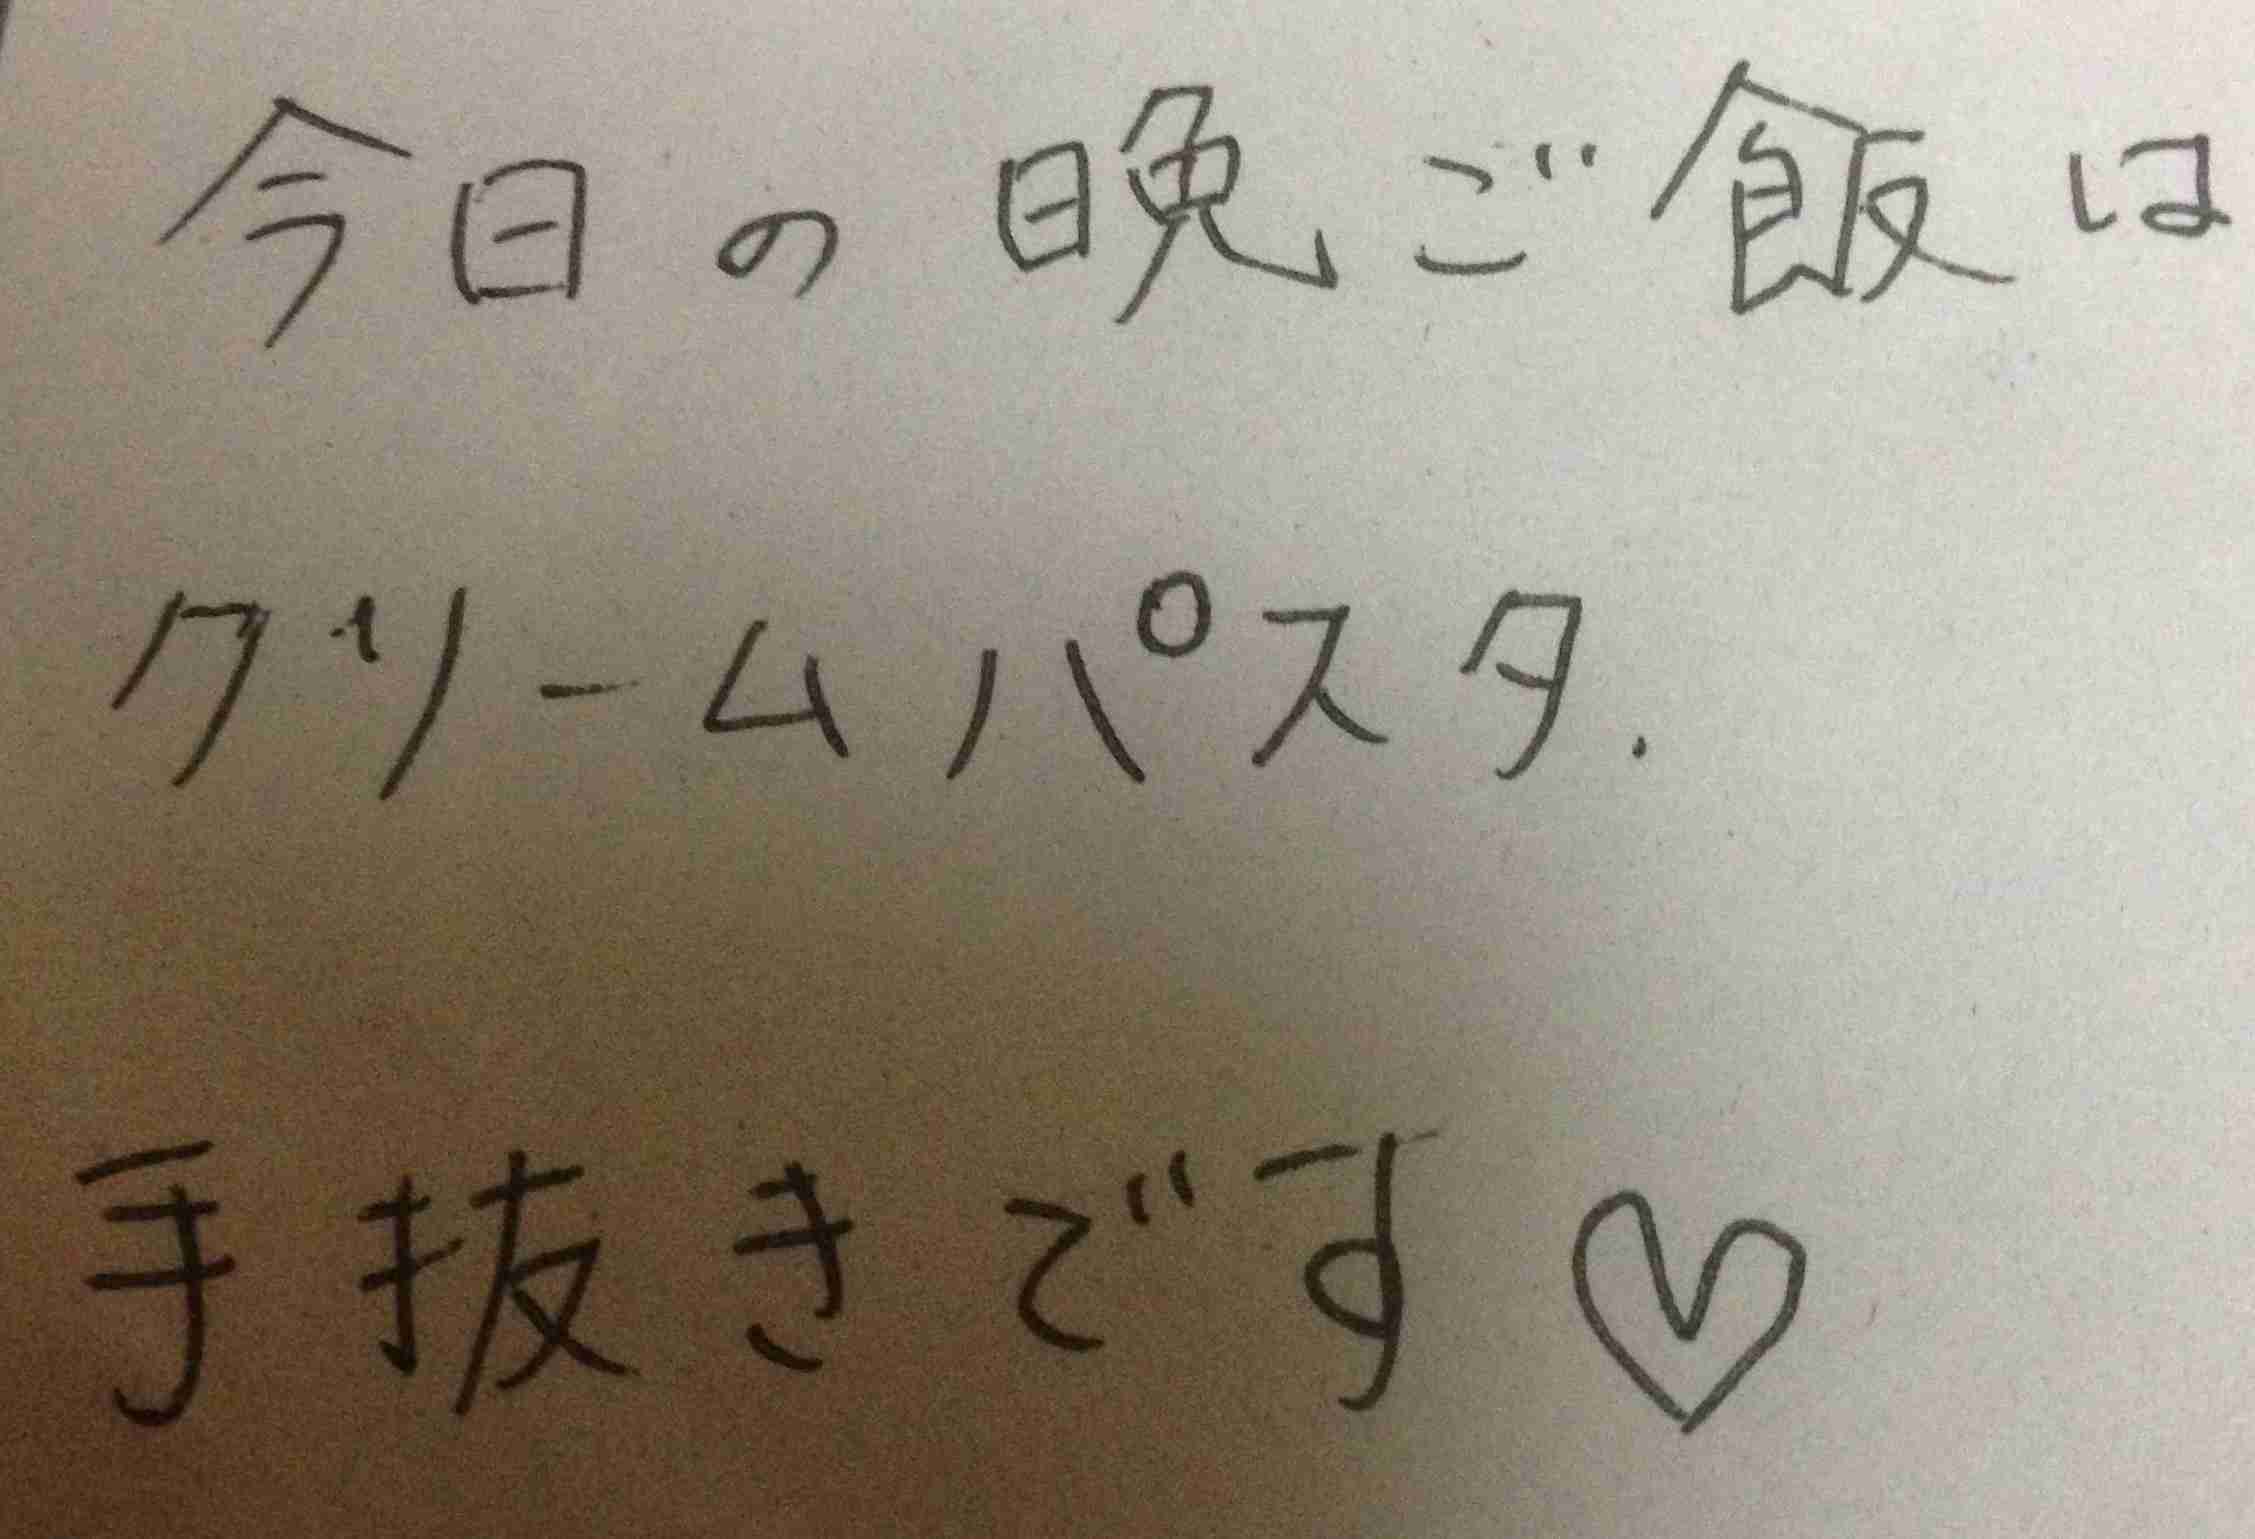 今日の晩ご飯は
クリームパスタ.
手抜きです♡